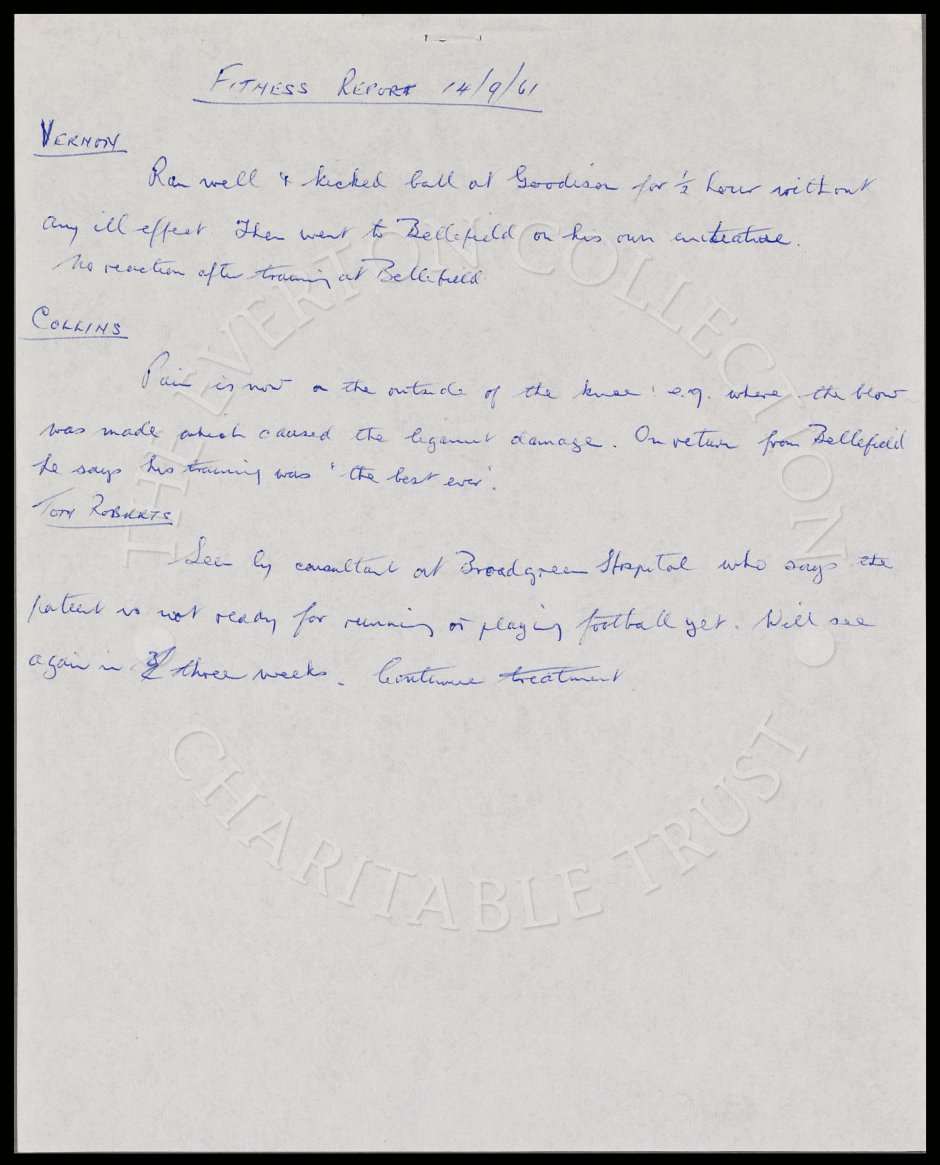 FITNESS REPORT 14/9/61
VERNON
Ran well & kicked ball at Goodison for ½ hour without
any ill effect Then went to Bellefield on his own initiative.
No reaction after training at Bellefield
COLLINS
Pain is now on the outside of the knee: e.g. where the blow
was made which caused the ligament damage. On return from Bellefield
he says his training was "the best ever".
TOM ROBERTS
Seen by consultant at Broadgreen Hospital who says the
patient is not ready for running or playing football yet. Will see
again in three weeks. Continue treatment
THE EVERTON COLLECTION
CHARITABLE TRUST